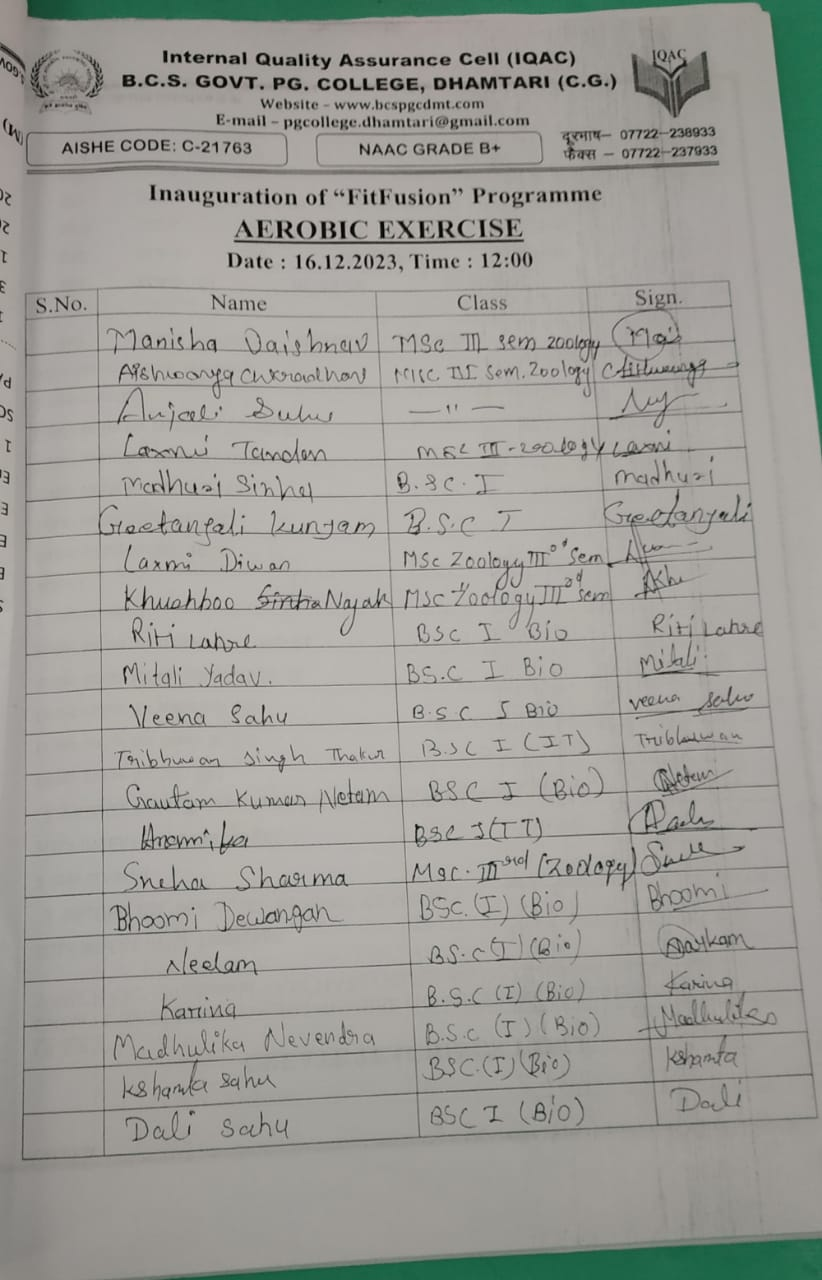 Internal Quality Assurance Cell (IQAC)
IQAC
B.C.S. GOVT. PG. COLLEGE, DHAMTARI (C.G.)
Website - www.bcspgcdmt.com
E-mail - pgcollege.dhamtari@gmail.com
AISHE CODE: C-21763 NAAC GRADE B+ दूरभाष– 07722-238933
फैक्स – 07722-237933
Inauguration of “FitFusion” Programme
AEROBIC EXERCISE
Date : 16.12.2023, Time : 12:00
S.No. Name Class Sign.
Manisha Vaishnav MSc III sem zoology
MSC III Sem. Zoology
Anjali Sahu —"—
Laxmi Tandon MSC III - zoology Laxmi
Madhuri Sinha B.SC. I madhuri
Geetanjali Kunjam B.S.C I Geetanjali
Laxmi Diwan MSc Zoology III rd Sem
Khushboo Sinha Nayak MSC Zoology III rd sem
Riti Lahre BSC I Bio Riti Lahre
Mitali Yadav. BS.C I Bio Mitali
Veena Sahu B.S.C I Bio veena sahu
Tribhuwan Singh Thakur B.SC I (IT) Tribhuwan
Gautam Kumar Netam BSC I (Bio) Netam
Anamika BSC I (IT)
Sneha Sharma Msc. III rd (Zoology)
Bhoomi Dewangan BSC. (I) (Bio) Bhoomi
Neelam B.S.C (I) (Bio)
Karina B.S.C (I) (Bio) Karina
Madhulika Nevendra B.S.C (I) (Bio) Madhulika
Kshamta Sahu BSC. (I) (Bio) Kshamta
Dali Sahu BSC I (Bio) Dali